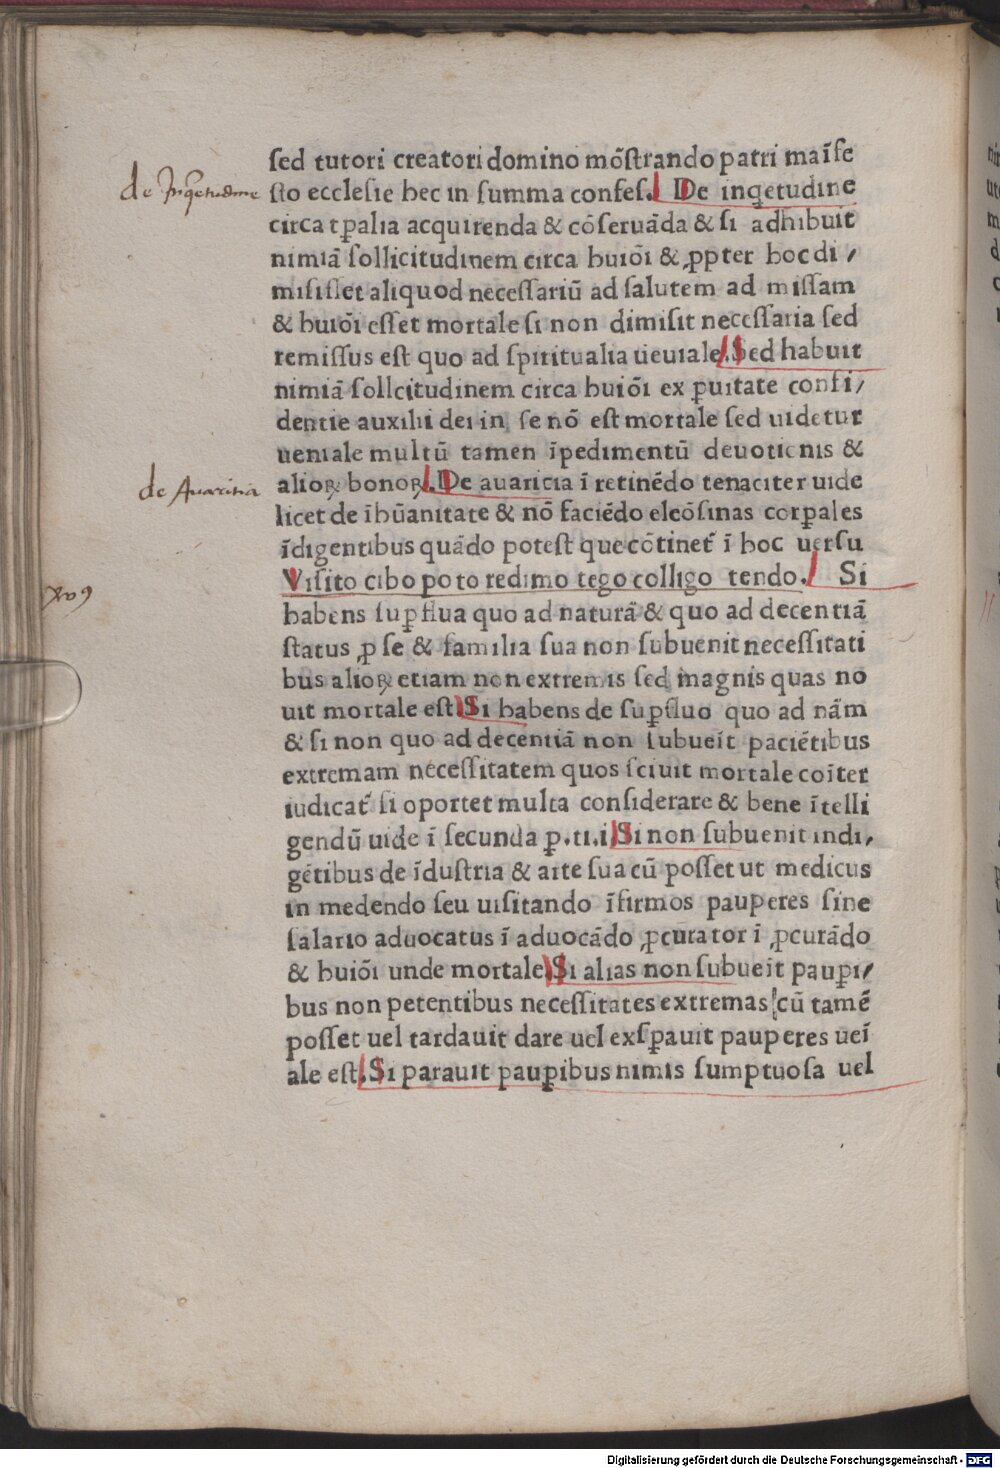 sed tutori creatori domino mōstrando patri maīfe
de Inqetudine
sto ecclesie hec in summa confes. De inqetudine
circa tꝑalia acquirenda & cōseruāda & si adhibuit
nimiā sollicitudinem circa huiōi & ꝓpter hoc di /
misisset aliquod necessariū ad salutem ad missam
& huiōi esset mortale si non dimisit necessaria sed
remissus est quo ad spiritualia ueuiale. Sed habuit
nimiā sollcitudinem circa huiōi ex ꝑuitate confi /
dentie auxilii dei in se nō est mortale sed uidetur
ueniale multū tamen īpedimentū deuotionis &
de Avaritia
alioꝝ bonoꝝ. De auaricia ī retinēdo tenaciter uide
licet de īhūanitate & nō faciēdo eleōsinas corꝑales
īdigentibus quādo potest que cōtinet᷑ ī hoc uersu
Visito cibo poto redimo tego colligo tendo. Si
habens suꝑflua quo ad naturā & quo ad decentiā
status ꝓ se & familia sua non subuenit necessitati
bus alioꝝ etiam non extremis sed magnis quas no
uit mortale est. Si habens de suꝑfluo quo ad nām
& si non quo ad decentiā non subueīt paciētibus
extremam necessitatem quos sciuit mortale coīter
iudicat᷑ si oportet multa considerare & bene ītelli
gendū uide ī secunda p.ti.i. Si non subuenit indi /
gētibus de īdustria & arte sua cū posset ut medicus
in medendo seu uisitando īfirmos pauperes sine
salario aduocatus ī aduocādo ꝓcurator ī ꝓcurādo
& huiōi unde mortale. Si alias non subueīt pauꝑi /
bus non petentibus necessitates extremas cū tamē
posset uel tardauit dare uel exsꝑauit pauperes ueī
ale est. Si parauit pauꝑibus nimis sumptuosa uel
Digitalisierung gefördert durch die Deutsche Forschungsgemeinschaft - DFG